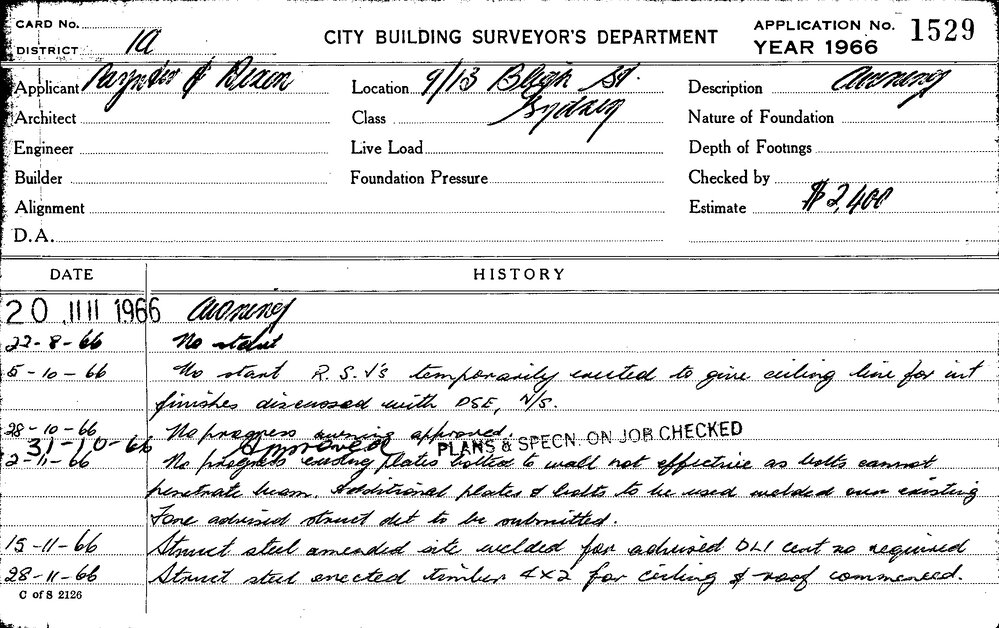 CARD No.
DISTRICT 1a
CITY BUILDING SURVEYOR'S DEPARTMENT
APPLICATION No. 1529
YEAR 1966
Applicant & Dixon
Location 9/13 Bligh St.
Sydney
Description Awning
Architect
Class
Nature of Foundation
Engineer
Live Load
Depth of Footings
Builder
Foundation Pressure
Checked by
Alignment
Estimate $2,400
D.A.
DATE
HISTORY
20 JUL 1966 Awning
22-8-66 No start
5-10-66 No start R.S.J's temporarily erected to give ceiling line for int
finishes discussed with DSE, N/S.
28-10-66 No progress awning approved.
31-10-66 Approved PLANS & SPECN. ON JOB CHECKED
2-11-66 No progress existing plates bolted to wall not effective as bolts cannot
penetrate beam. Additional plates & bolts to be used welded over existing
advised struct det to be submitted.
15-11-66 Struct steel amended site welded for advised cert so required
28-11-66 Struct steel erected timber 4x2 for ceiling & roof commenced.
C of S 2126